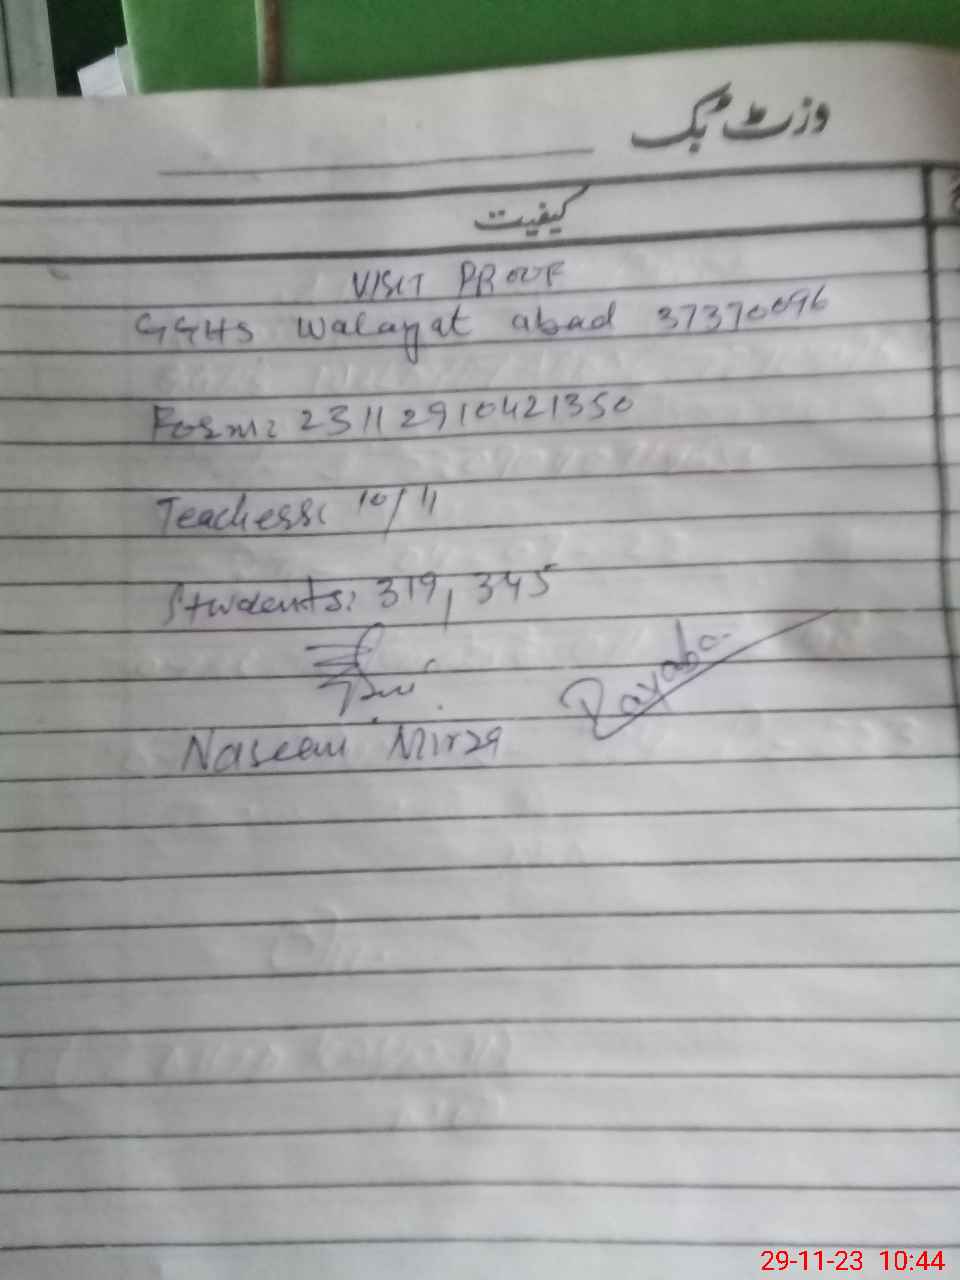 وزٹ بک
کیفیت
VISIT PROOF
GGHS Walayat abad 37370096
Form: 23112910421350
Teachers: 10/11
Students: 319, 345
Naseem Mirza
29-11-23 10:44